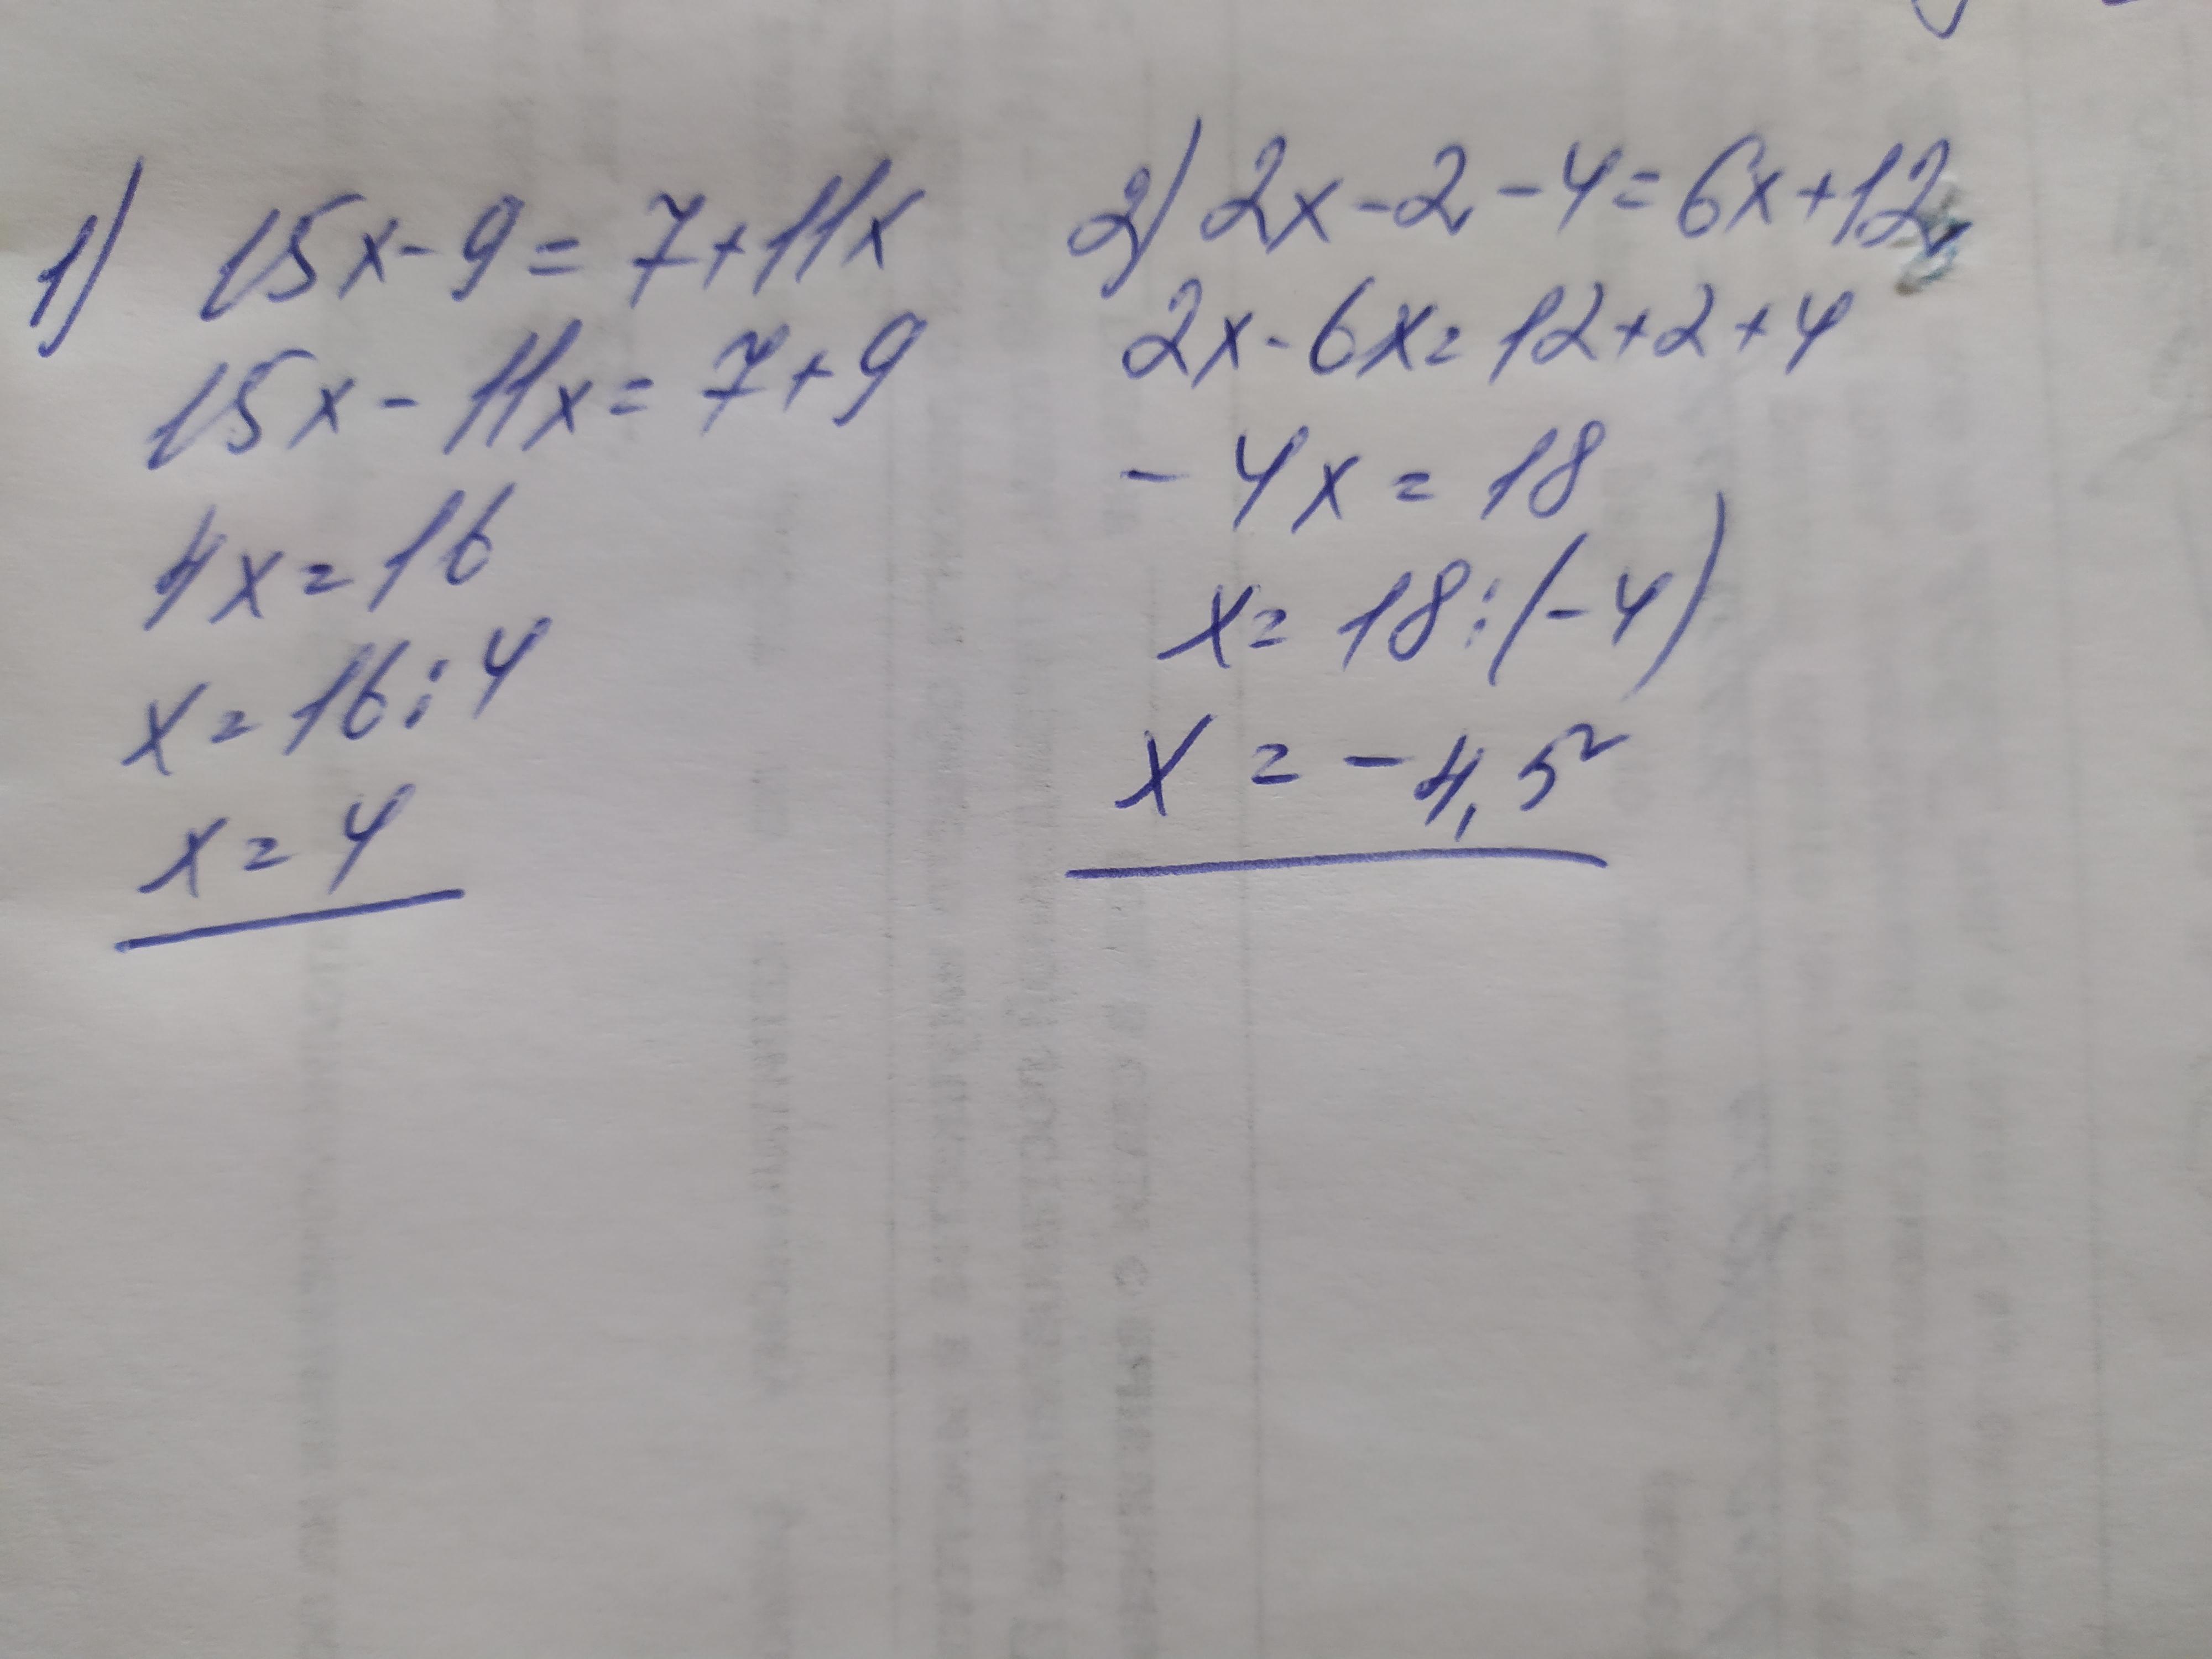 1) 15x-9=7+11x
15x-11x=7+9
4x=16
x=16:4
x=4
2) 2x-2-4=6x+12
2x-6x=12+2+4
-4x=18
x=18:(-4)
x=-4,5